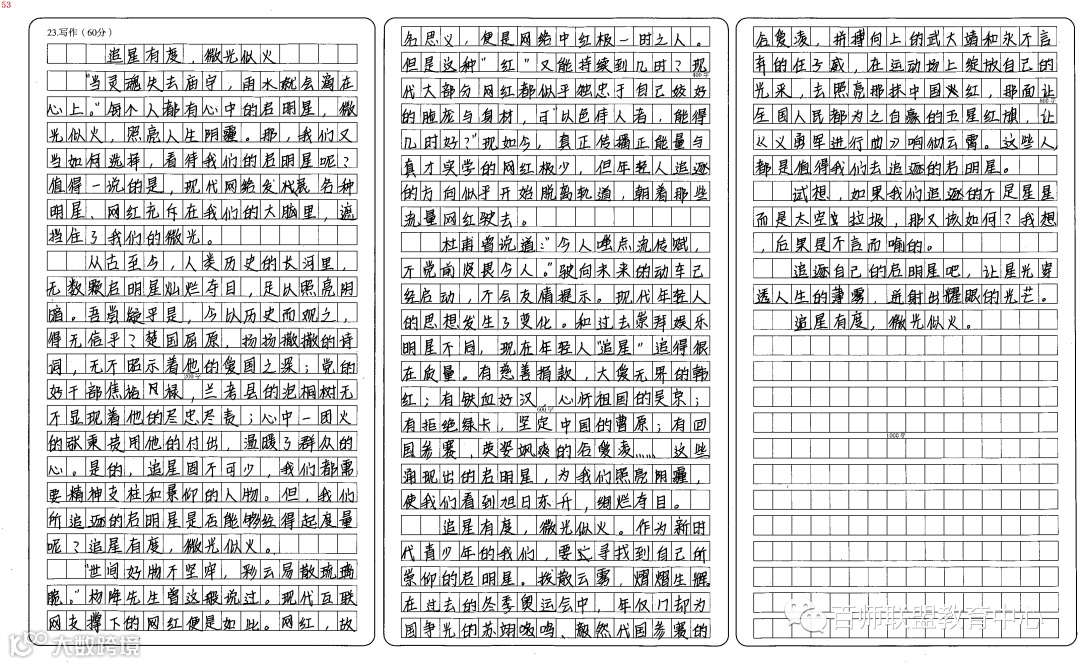 53
23.写作（60分）
追星有度，微光似火
"当灵魂失去庙宇，雨水就会滴在
心上。"每个人都有心中的启明星，微
光似火，照亮人生阴霾。那，我们又
当如何选择，看待我们的启明星呢？
值得一说的是，现代网络发展，各种
明星、网红充斥在我们的大脑里，遮
挡住了我们的微光。
从古至今，人类历史的长河里，
无数颗启明星灿烂夺目，足以照亮阴
暗。吾尝疑乎是，今以历史而观之，
得无信乎？楚国屈原，扬扬撒撒的诗
词，无不昭示着他的爱国之深；党的
好干部焦裕禄，兰考县的泡桐树无
200字
不显现着他的尽忠尽责；心中一团火
的张秉贵用他的付出，温暖了群众的
心。是的，追星固不可少，我们都需
要精神支柱和景仰的人物。但，我们
所追逐的启明星是否能够经得起度量
呢？追星有度，微光似火。
"世间好物不坚牢，彩云易散琉璃
脆。"杨绛先生曾这般说过。现代互联
网支撑下的网红便是如此。网红，故
名思义，便是网络中红极一时之人。
但是这种"红"又能持续到几时？现
400字
代大部分网红都似乎独忠于自己姣好
的脸庞与身材，可"以色侍人者，能得
几时好？"现如今，真正传播正能量与
真才实学的网红极少，但年轻人追逐
的方向似乎开始脱离轨道，朝着那些
流量网红驶去。
杜甫曾说道："今人嗤点流传赋，
不觉前贤畏今人。"驶向未来的动车已
经启动，不会友情提示。现代年轻人
的思想发生了变化。和过去崇拜娱乐
明星不同，现在年轻人"追星"追得很
在质量。有慈善捐款，大爱无界的韩
红；有铁血好汉，心怀祖国的吴京；
600字
有拒绝绿卡，坚定中国的曹原；有回
国参赛，英姿飒爽的谷爱凌……这些
涌现出的启明星，为我们照亮阴霾，
使我们看到旭日东升，绚烂夺目。
追星有度，微光似火。作为新时
代青少年的我们，要去寻找到自己所
崇仰的启明星。拨散云雾，熠熠生辉
在过去的冬季奥运会中，年仅17却为
国争光的苏翊鸣、毅然代国参赛的
谷爱凌，拼搏向上的武大靖和永不言
弃的任子威，在运动场上绽放自己的
光采，去照亮那抹中国火红，那面让
800字
全国人民都为之自豪的五星红旗，让
《义勇军进行曲》响彻云霄。这些人
都是值得我们去追逐的启明星。
试想，如果我们追逐的不是星星
而是太空垃圾，那又该如何？我想
，后果是不言而喻的。
追逐自己的启明星吧，让星光穿
透人生的薄雾，迸射出耀眼的光芒。
追星有度，微光似火。
1000字
百师联盟教育中心
大数跨境